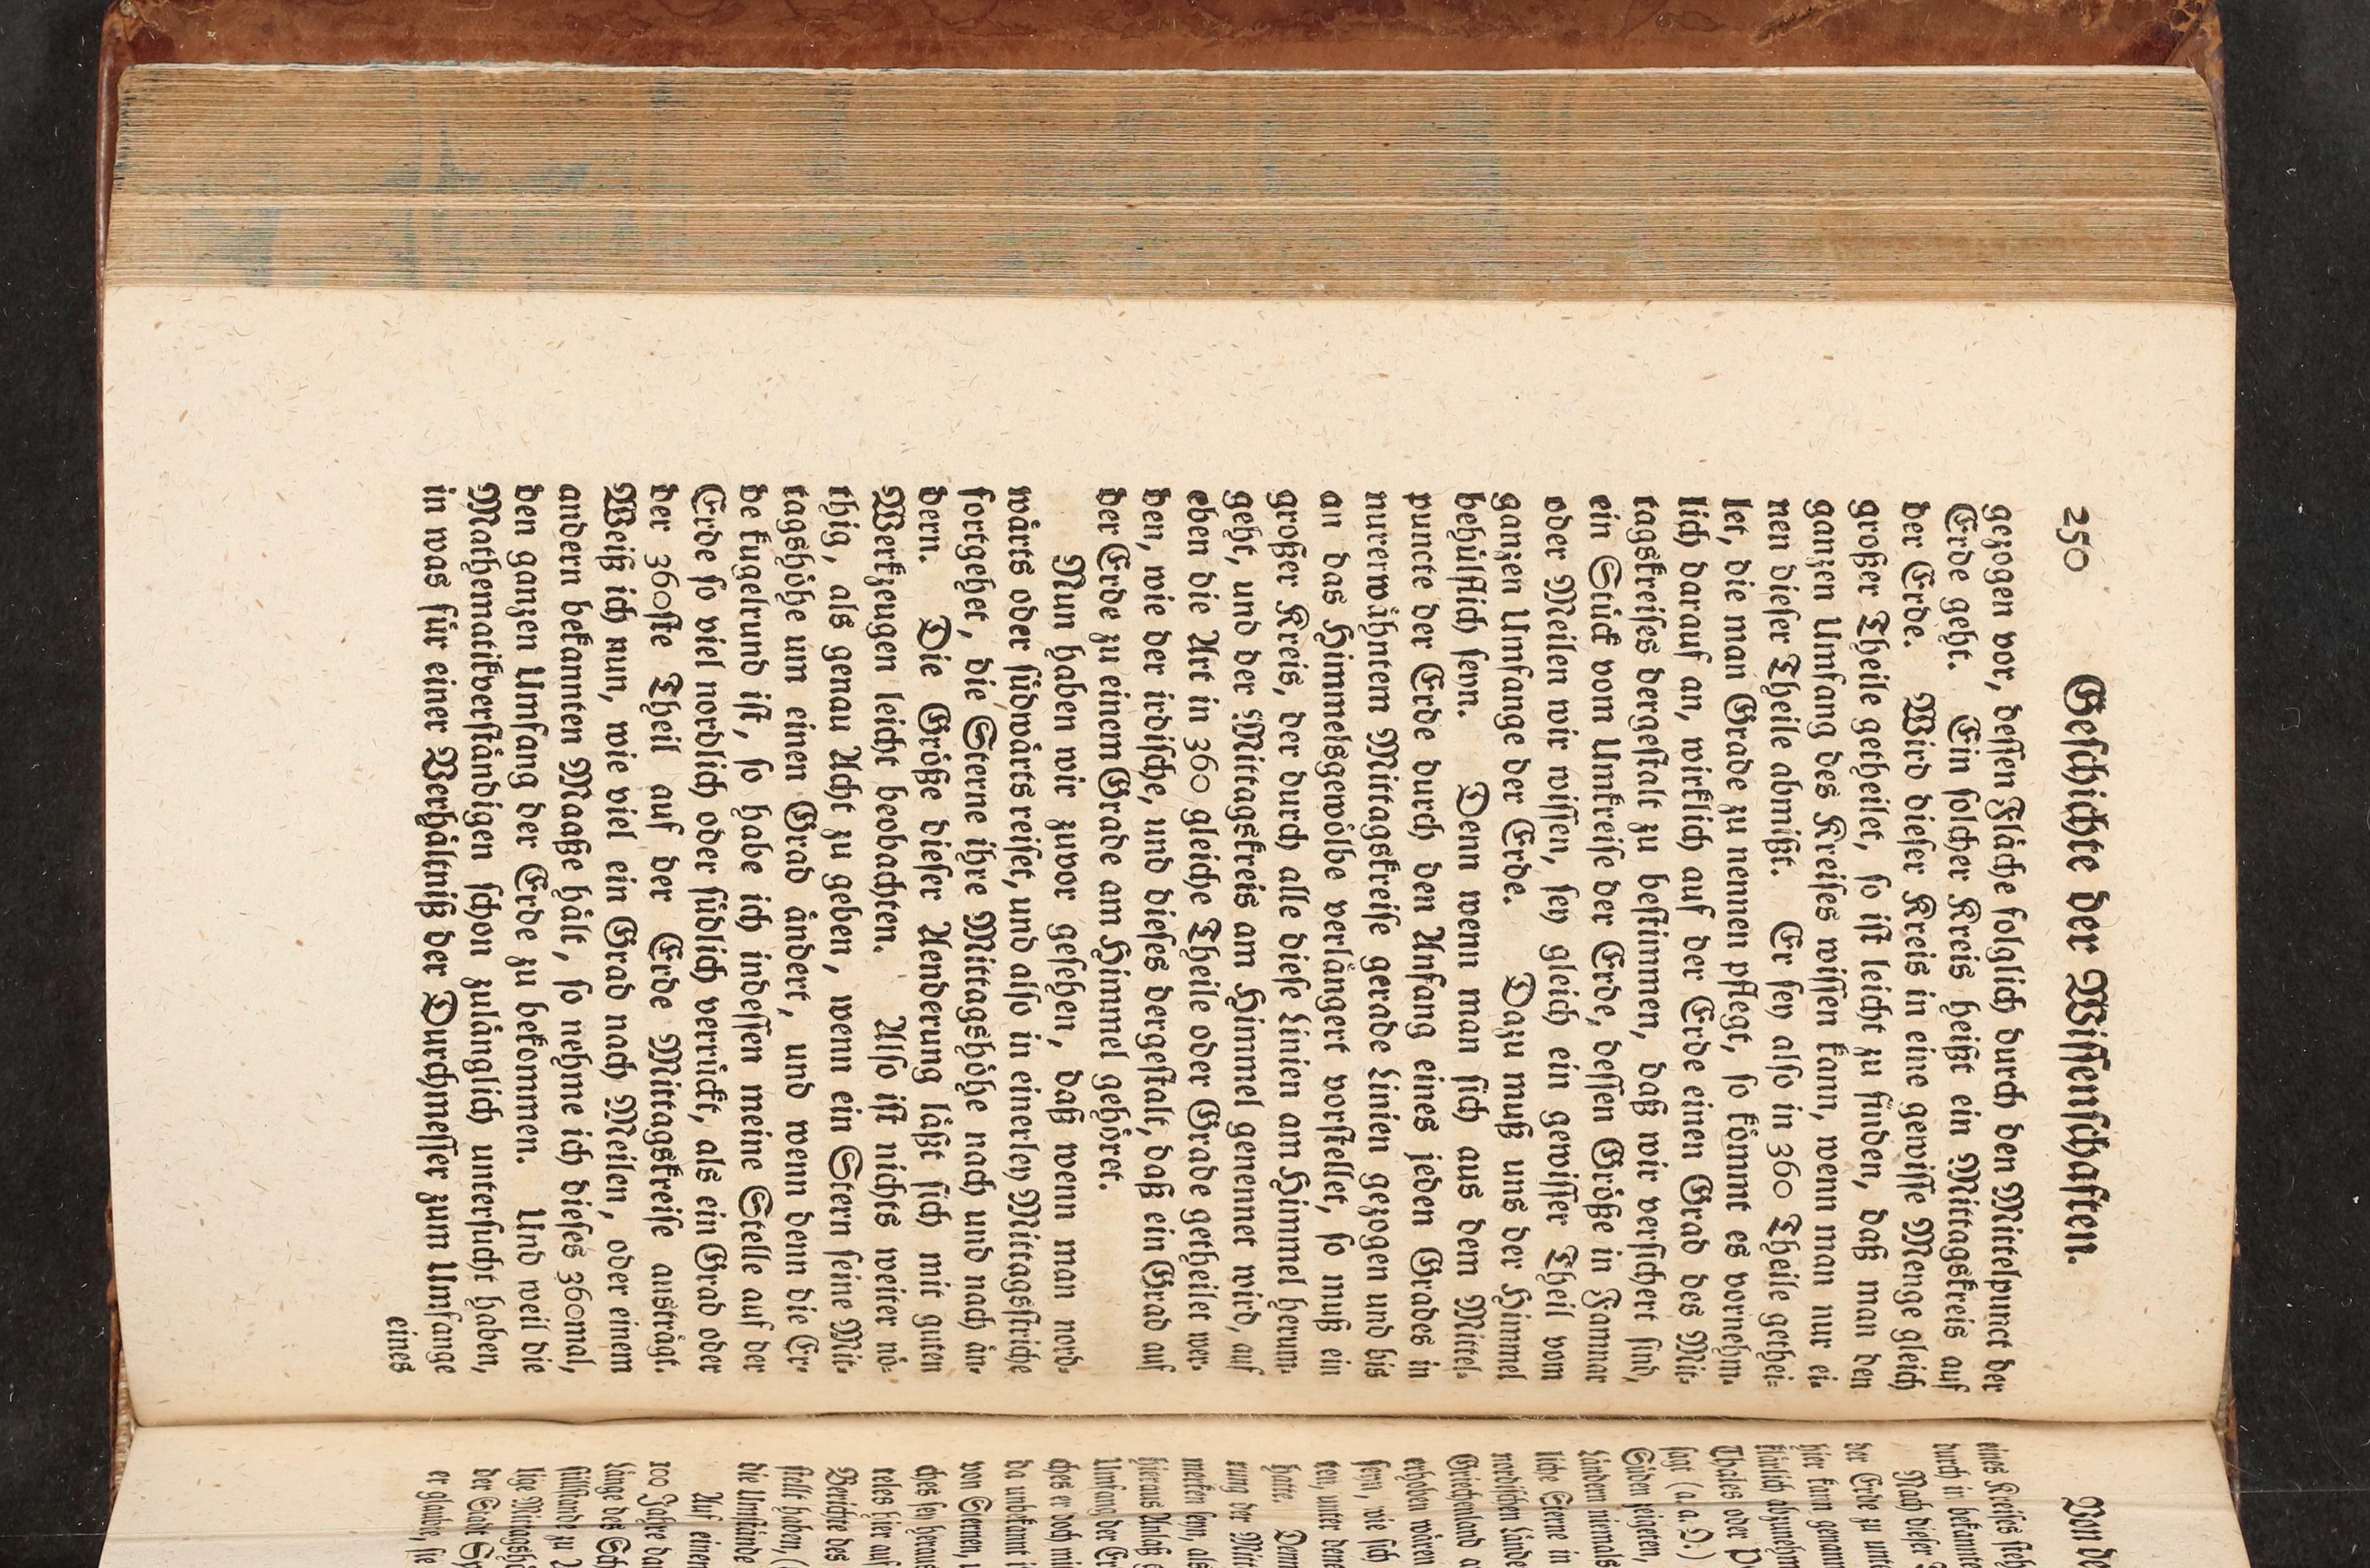 250 Geſchichte der Wiſſenſchaften.
gezogen vor, deſſen Fläche folglich durch den Mittelpunct der
Erde geht. Ein ſolcher Kreis heißt ein Mittagskreis auf
der Erde. Wird dieſer Kreis in eine gewiſſe Menge gleich
großer Theile getheilet, ſo iſt leicht zu finden, daß man den
ganzen Umfang des Kreiſes wiſſen kann, wenn man nur ei-
nen dieſer Theile abmißt. Er ſey alſo in 360 Theile gethei-
let, die man Grade zu nennen pflegt, ſo kömmt es vornehm-
lich darauf an, wirklich auf der Erde einen Grad des Mit-
tagskreiſes dergeſtalt zu beſtimmen, daß wir verſichert ſind,
ein Stück vom Umkreiſe der Erde, deſſen Größe in
oder Meilen wir wiſſen, ſey gleich ein gewiſſer Theil vom
ganzen Umfange der Erde. Dazu muß uns der Himmel
behülflich ſeyn. Denn wenn man ſich aus dem Mittel-
puncte der Erde durch den Anfang eines jeden Grades in
nurerwähntem Mittagskreiſe gerade Linien gezogen und bis
an das Himmelsgewölbe verlängert vorſtellet, ſo muß ein
großer Kreis, der durch alle dieſe Linien am Himmel herum-
geht, und der Mittagskreis am Himmel genennet wird, auf
eben die Art in 360 gleiche Theile oder Grade getheilet wer-
den, wie der irdiſche, und dieſes dergeſtalt, daß ein Grad auf
der Erde zu einem Grade am Himmel gehöret.
Nun haben wir zuvor geſehen, daß wenn man nord-
wärts oder ſüdwärts reiſet, und alſo in einerley Mittagsſtriche
fortgehet, die Sterne ihre Mittagshöhe nach und nach än-
dern. Die Größe dieſer Aenderung läßt ſich mit guten
Werkzeugen leicht beobachten. Alſo iſt nichts weiter nö-
thig, als genau Acht zu geben, wenn ein Stern ſeine Mit-
tagshöhe um einen Grad ändert, und wenn denn die Er-
de kugelrund iſt, ſo habe ich indeſſen meine Stelle auf der
Erde ſo viel nordlich oder ſüdlich verrückt, als ein Grad oder
der 360ſte Theil auf der Erde Mittagskreiſe austrägt.
Weiß ich nun, wie viel ein Grad nach Meilen, oder einem
andern bekannten Maaße hält, ſo nehme ich dieſes 360mal,
den ganzen Umfang der Erde zu bekommen. Und weil die
Mathematikverſtändigen ſchon zulänglich unterſucht haben,
in was für einer Verhältniß der Durchmeſſer zum Umfange
eines
eines Kreiſes
durch in
Nach dieſer
der Erde zu
hier kurz
Thales oder
ſagt (a. a. O.)
Süden zeigeten,
Ländern niemals
liche Sterne in
nordiſchen
Griechenland
erhoben wären
ſeyn, wie ſich
hatte. Denn
rung der
merken ſeyn, als
hieraus Anlaß
Umfang der
ches er doch
da unbekannt
von Sternen,
ches ſey
teles hier auf
Berichte des
ſtellt haben,
die Umſtände
Auf einen
100 Jahre
Länge des
der Stadt
er glaube, ſie